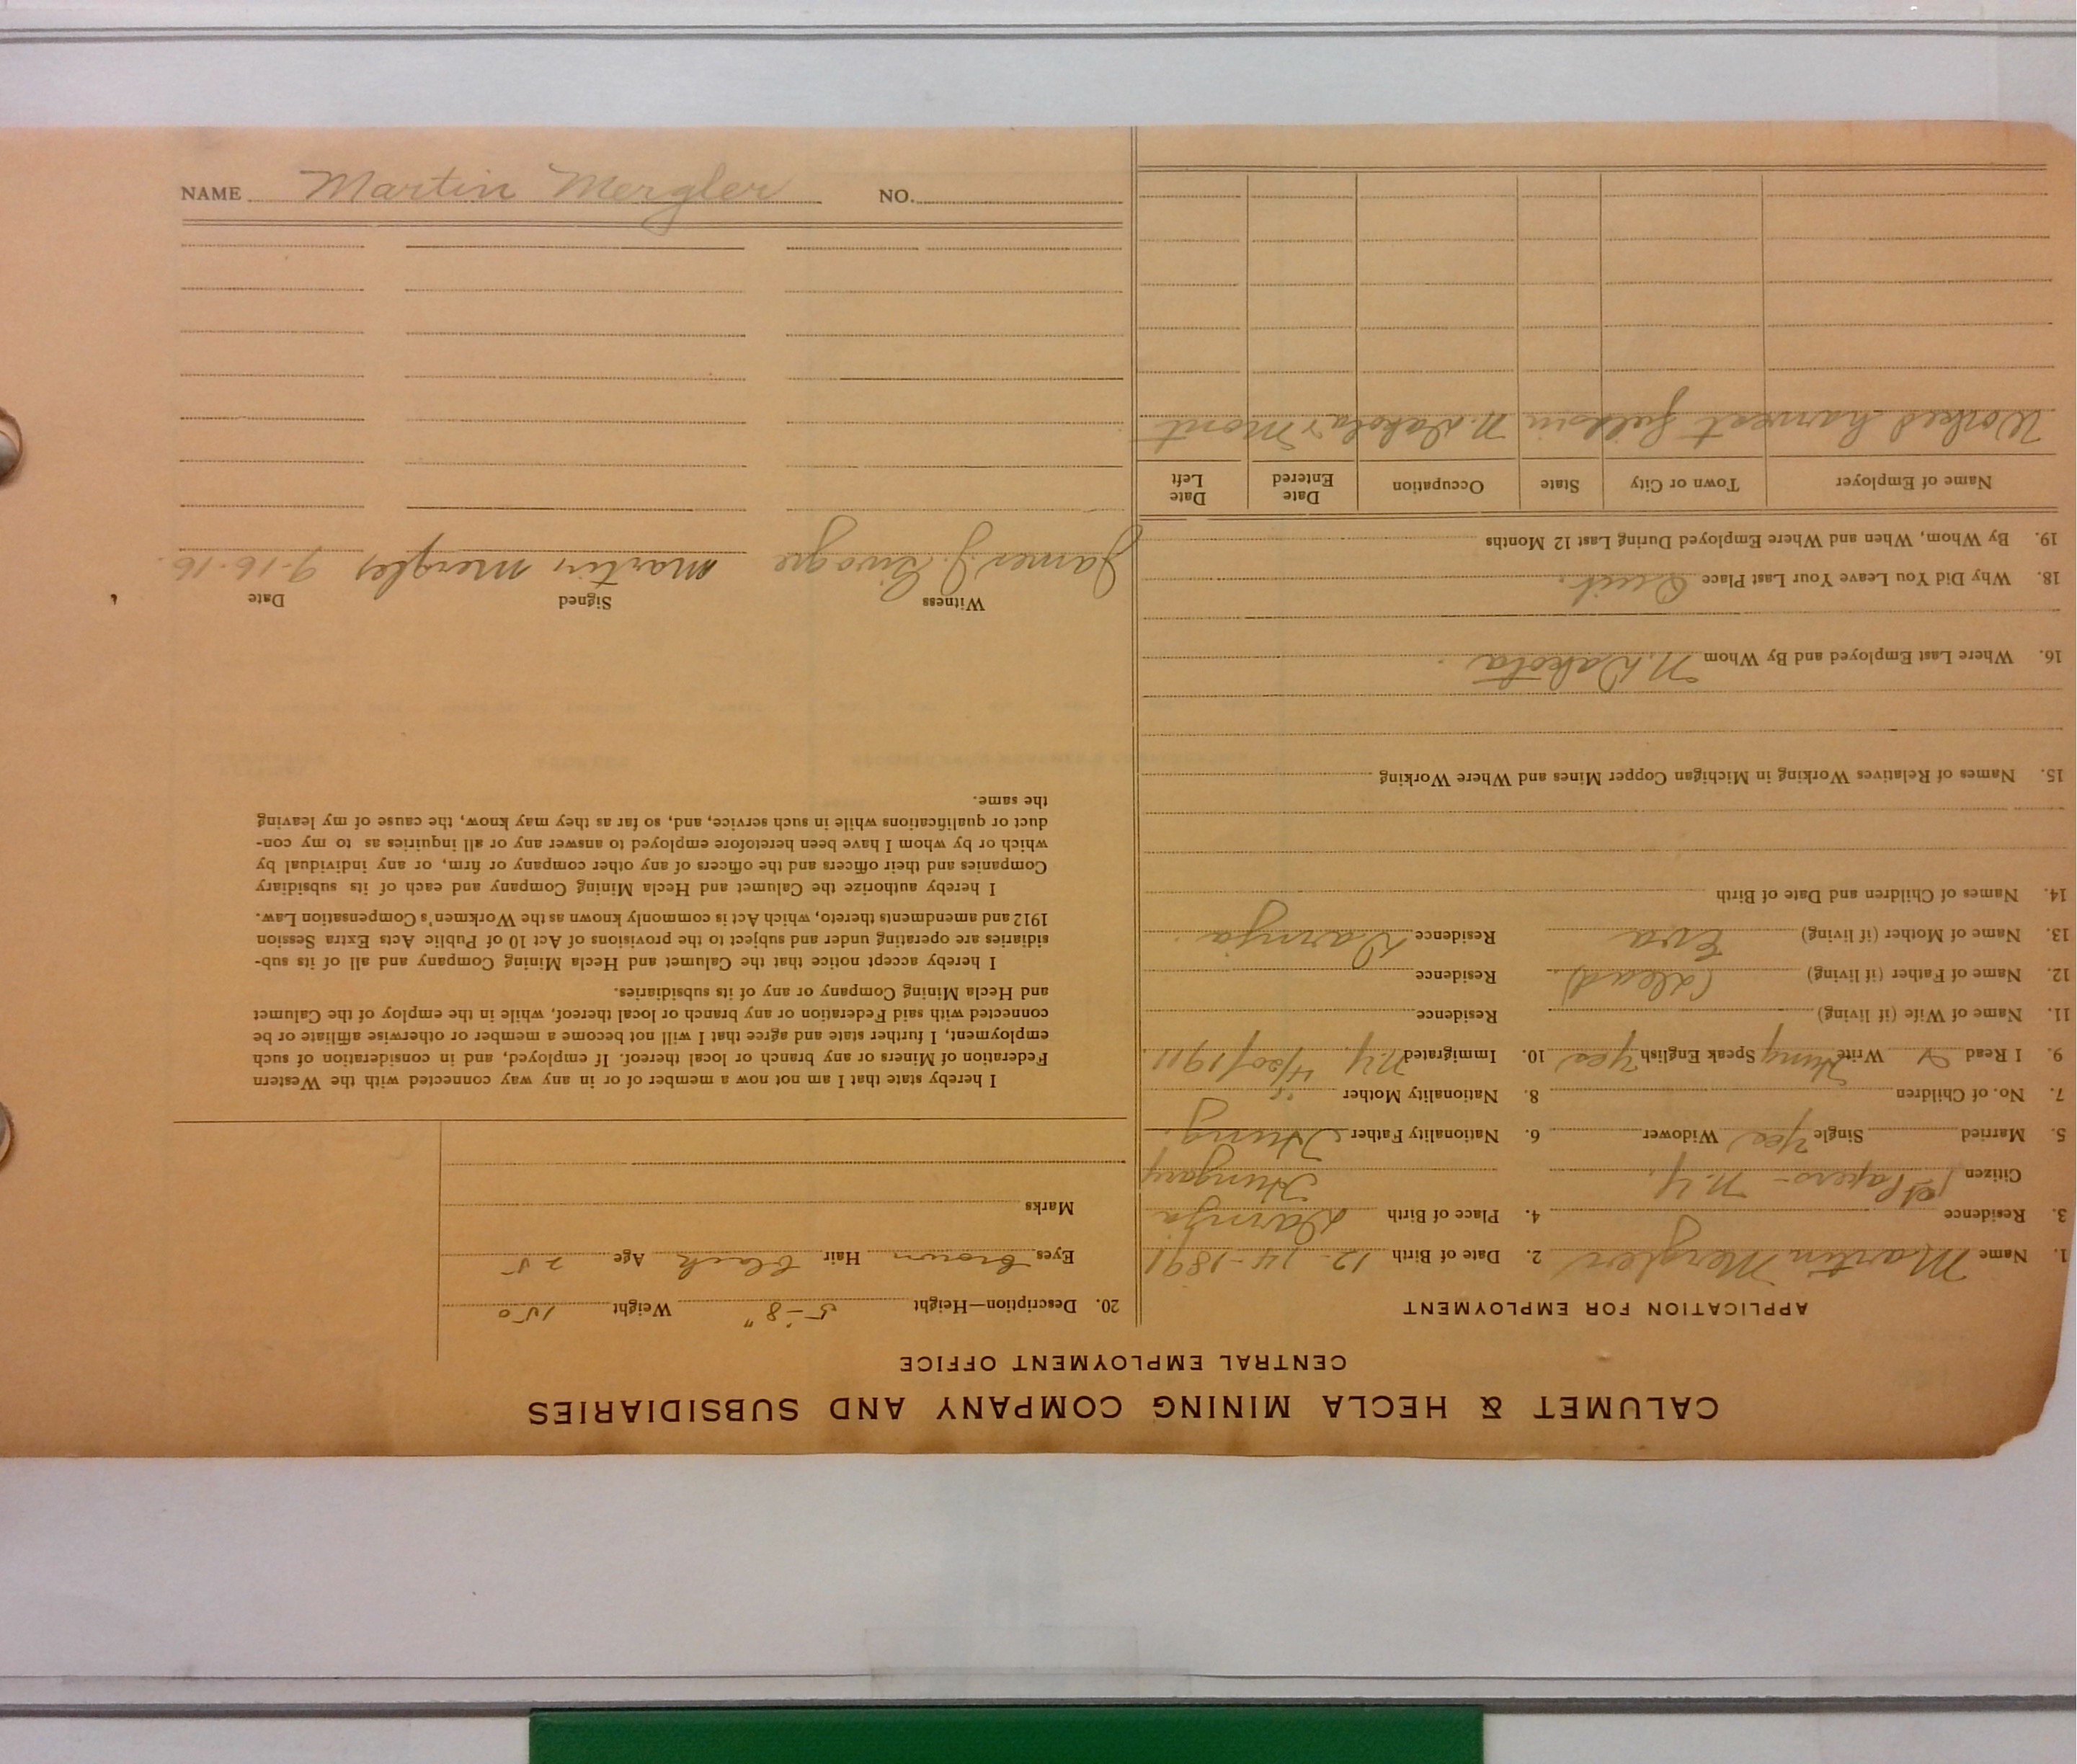 CALUMET & HECLA MINING COMPANY AND SUBSIDIARIES
CENTRAL EMPLOYMENT OFFICE
APPLICATION FOR EMPLOYMENT
1. Name Martin Mergler 2. Date of Birth 12-14-1891
3. Residence 4. Place of Birth Darnya
Citizen 1st Papers - N.Y. Hungary
5. Married Single Yes Widower 6. Nationality Father Hung.
7. No. of Children 8. Nationality Mother "
9. I Read & Write Hung Speak English Yes 10. Immigrated N.Y. 4/20/1911
11. Name of Wife (if living) Residence
12. Name of Father (if living) (dead) Residence
13. Name of Mother (if living) Eva Residence Darnya
14. Names of Children and Date of Birth
15. Names of Relatives Working in Michigan Copper Mines and Where Working
16. Where Last Employed and By Whom N. Dakota
18. Why Did You Leave Your Last Place Quit.
19. By Whom, When and Where Employed During Last 12 Months
Name of Employer Town or City State Occupation Date Entered Date Left
Worked harvest fields in N. Dakota & Mont
20. Description—Height 5-8" Weight 150
Eyes brown Hair black Age 25
Marks
I hereby state that I am not now a member of or in any way connected with the Western
Federation of Miners or any branch or local thereof. If employed, and in consideration of such
employment, I further state and agree that I will not become a member or otherwise affiliate or be
connected with said Federation or any branch or local thereof, while in the employ of the Calumet
and Hecla Mining Company or any of its subsidiaries.
I hereby accept notice that the Calumet and Hecla Mining Company and all of its sub-
sidiaries are operating under and subject to the provisions of Act 10 of Public Acts Extra Session
1912 and amendments thereto, which Act is commonly known as the Workmen's Compensation Law.
I hereby authorize the Calumet and Hecla Mining Company and each of its subsidiary
Companies and their officers and the officers of any other company or firm, or any individual by
which or by whom I have been heretofore employed to answer any or all inquiries as to my con-
duct or qualifications while in such service, and, so far as they may know, the cause of my leaving
the same.
Witness Signed Date
James J. Martin Mergler 9-16-16
NAME Martin Mergler NO.